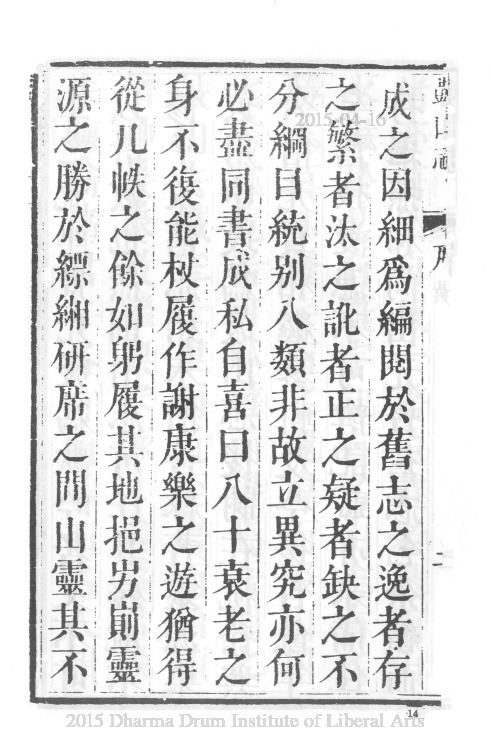 成之因細爲編閱於舊志之逸者存
之繁者汰之訛者正之疑者缺之不
分綱目統別八類非故立異究亦何
必盡同書成私自喜曰八十衰老之
身不復能杖履作謝康樂之遊猶得
從几帙之餘如躬履其地挹岃崱靈
源之勝於縹緗硏席之間山靈其不
序
二
2015-04-16
14
2015 Dharma Drum Institute of Liberal Arts